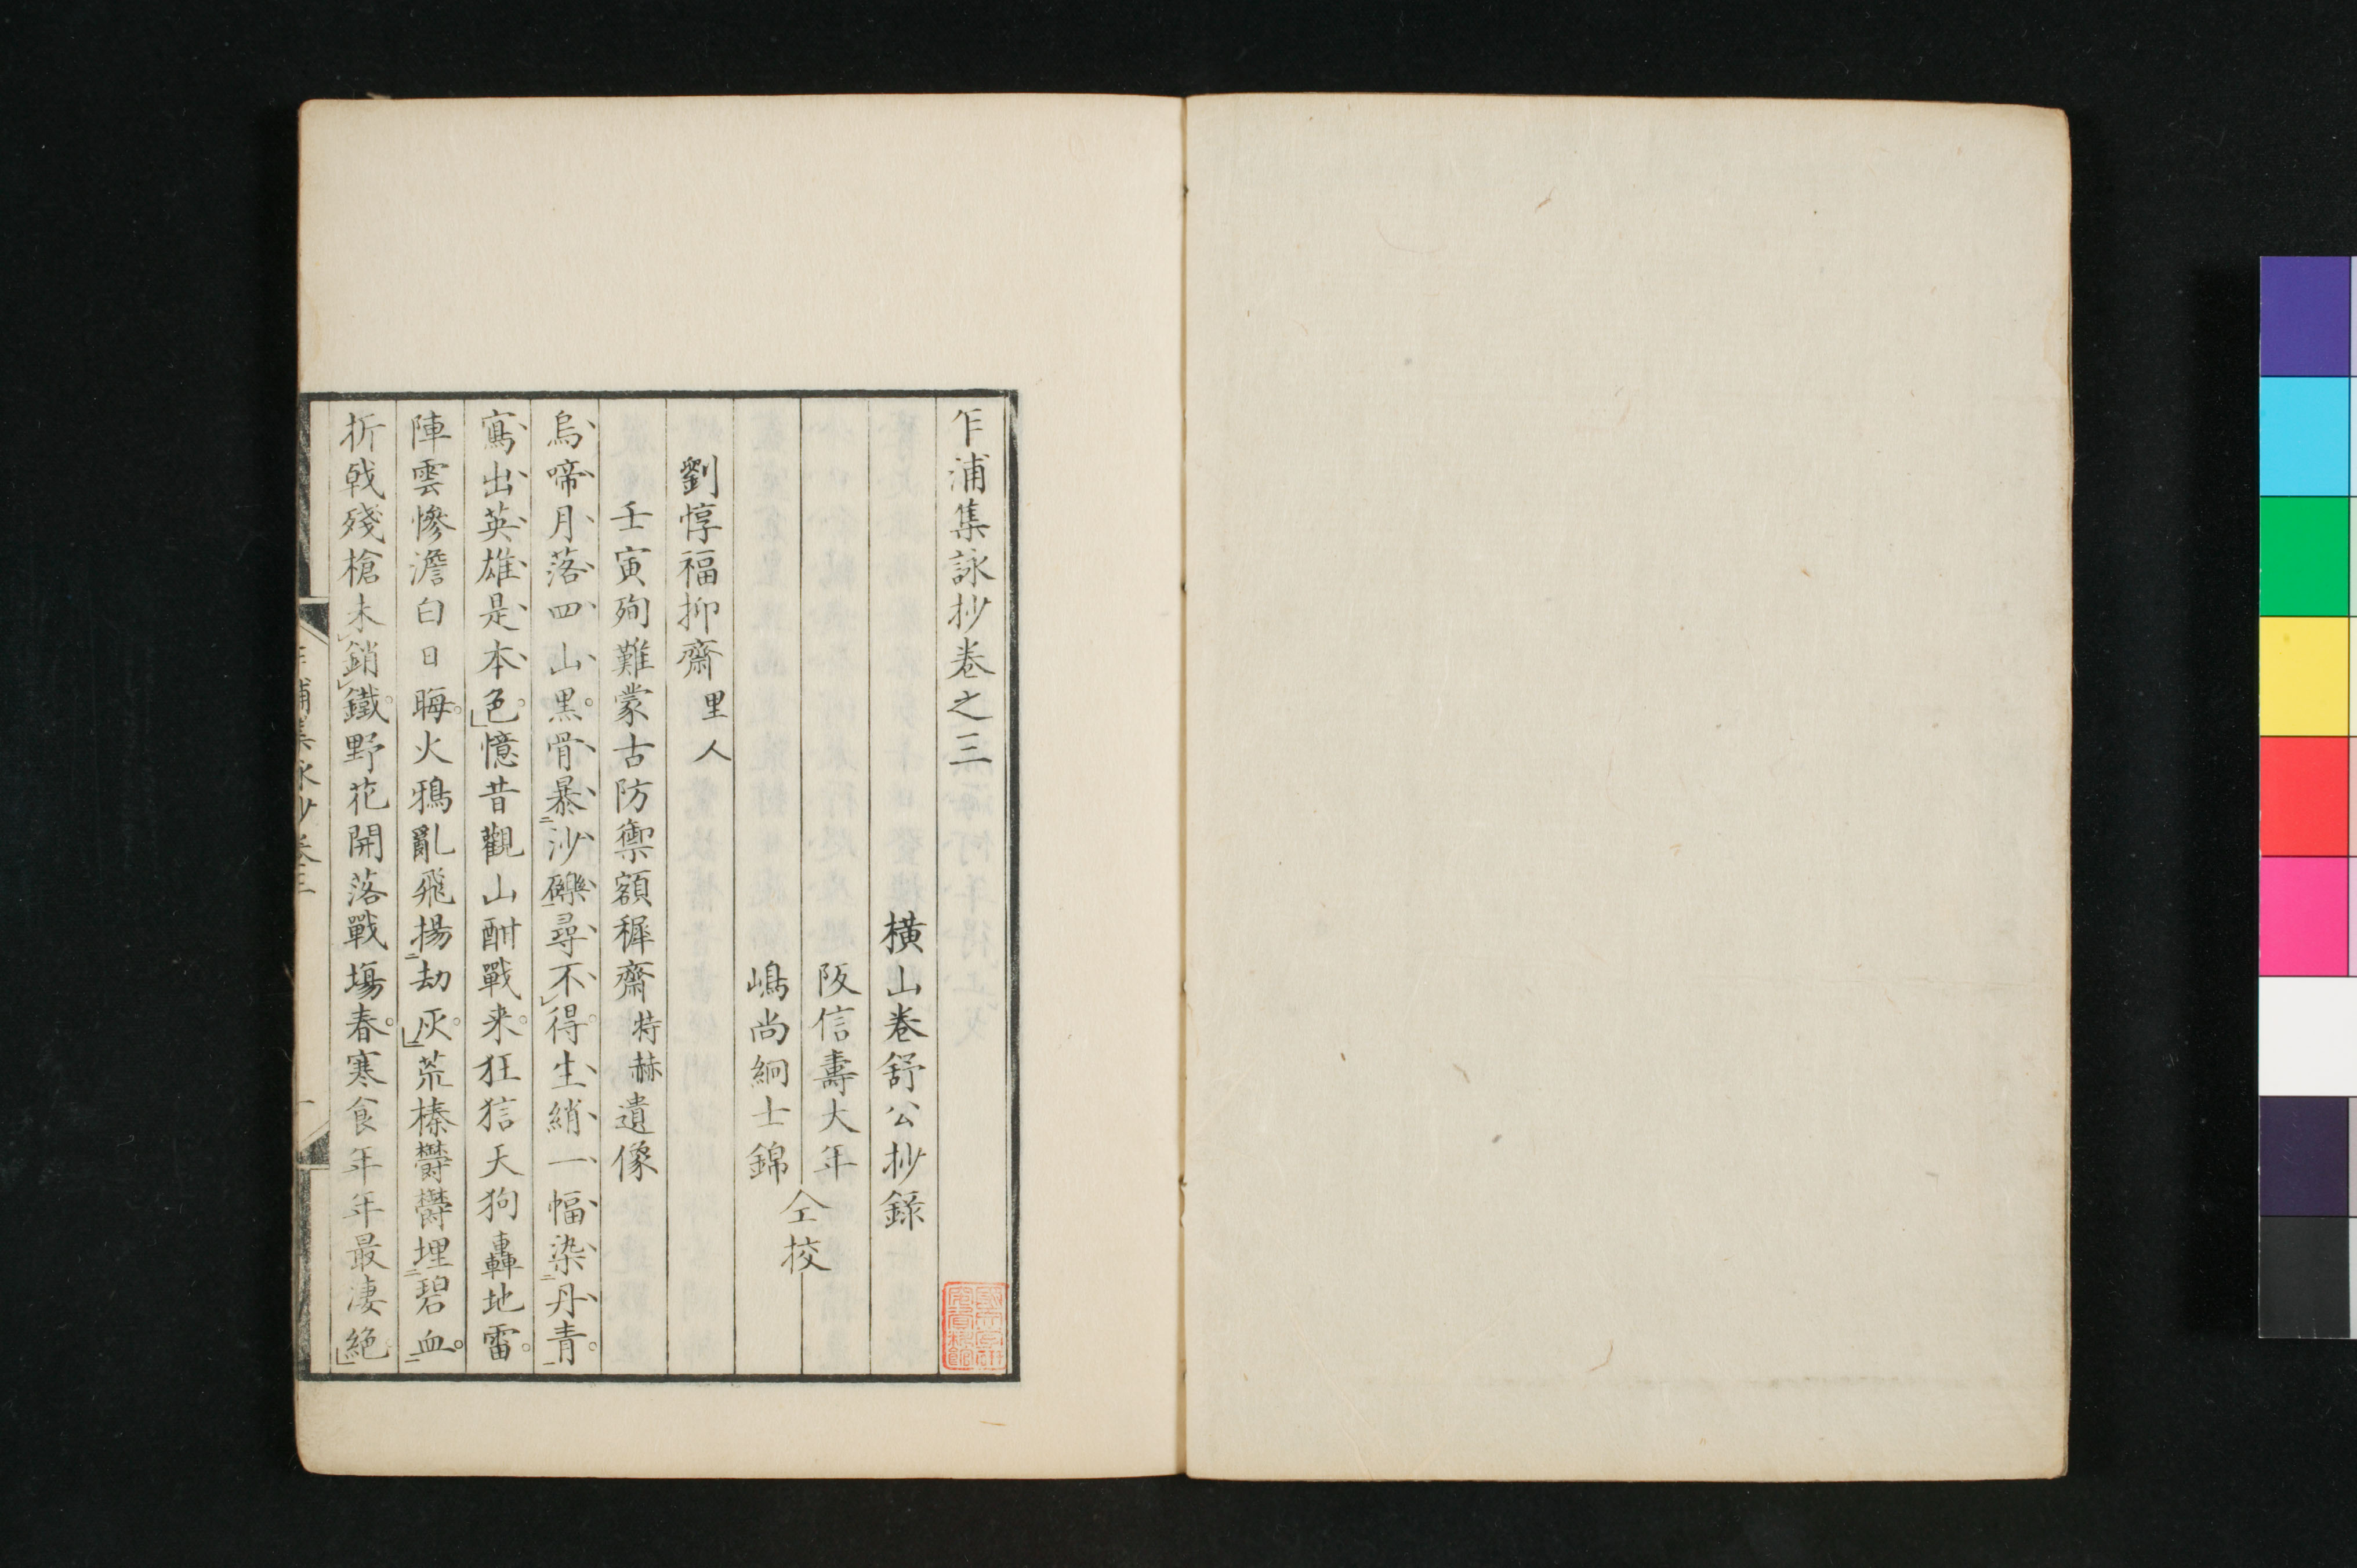 乍浦集詠抄卷之三
橫山卷舒公抄錄
阪信壽大年
嶋尚絅士錦
仝挍
劉惇福抑齋里人
壬寅殉難蒙古防禦額穉齋特赫遺像
烏啼月落四山黑。骨暴沙礫尋不得。生綃一幅染丹青。
寫出英雄是本色。憶昔觀山酣戰来。狂狺天狗轟地雷。
陣雲慘澹白日晦。火鴉亂飛揚劫灰。荒榛欝欝埋碧血。
折戟殘槍未銷鐵。野花開落戰塲春。寒食年年最淒絕